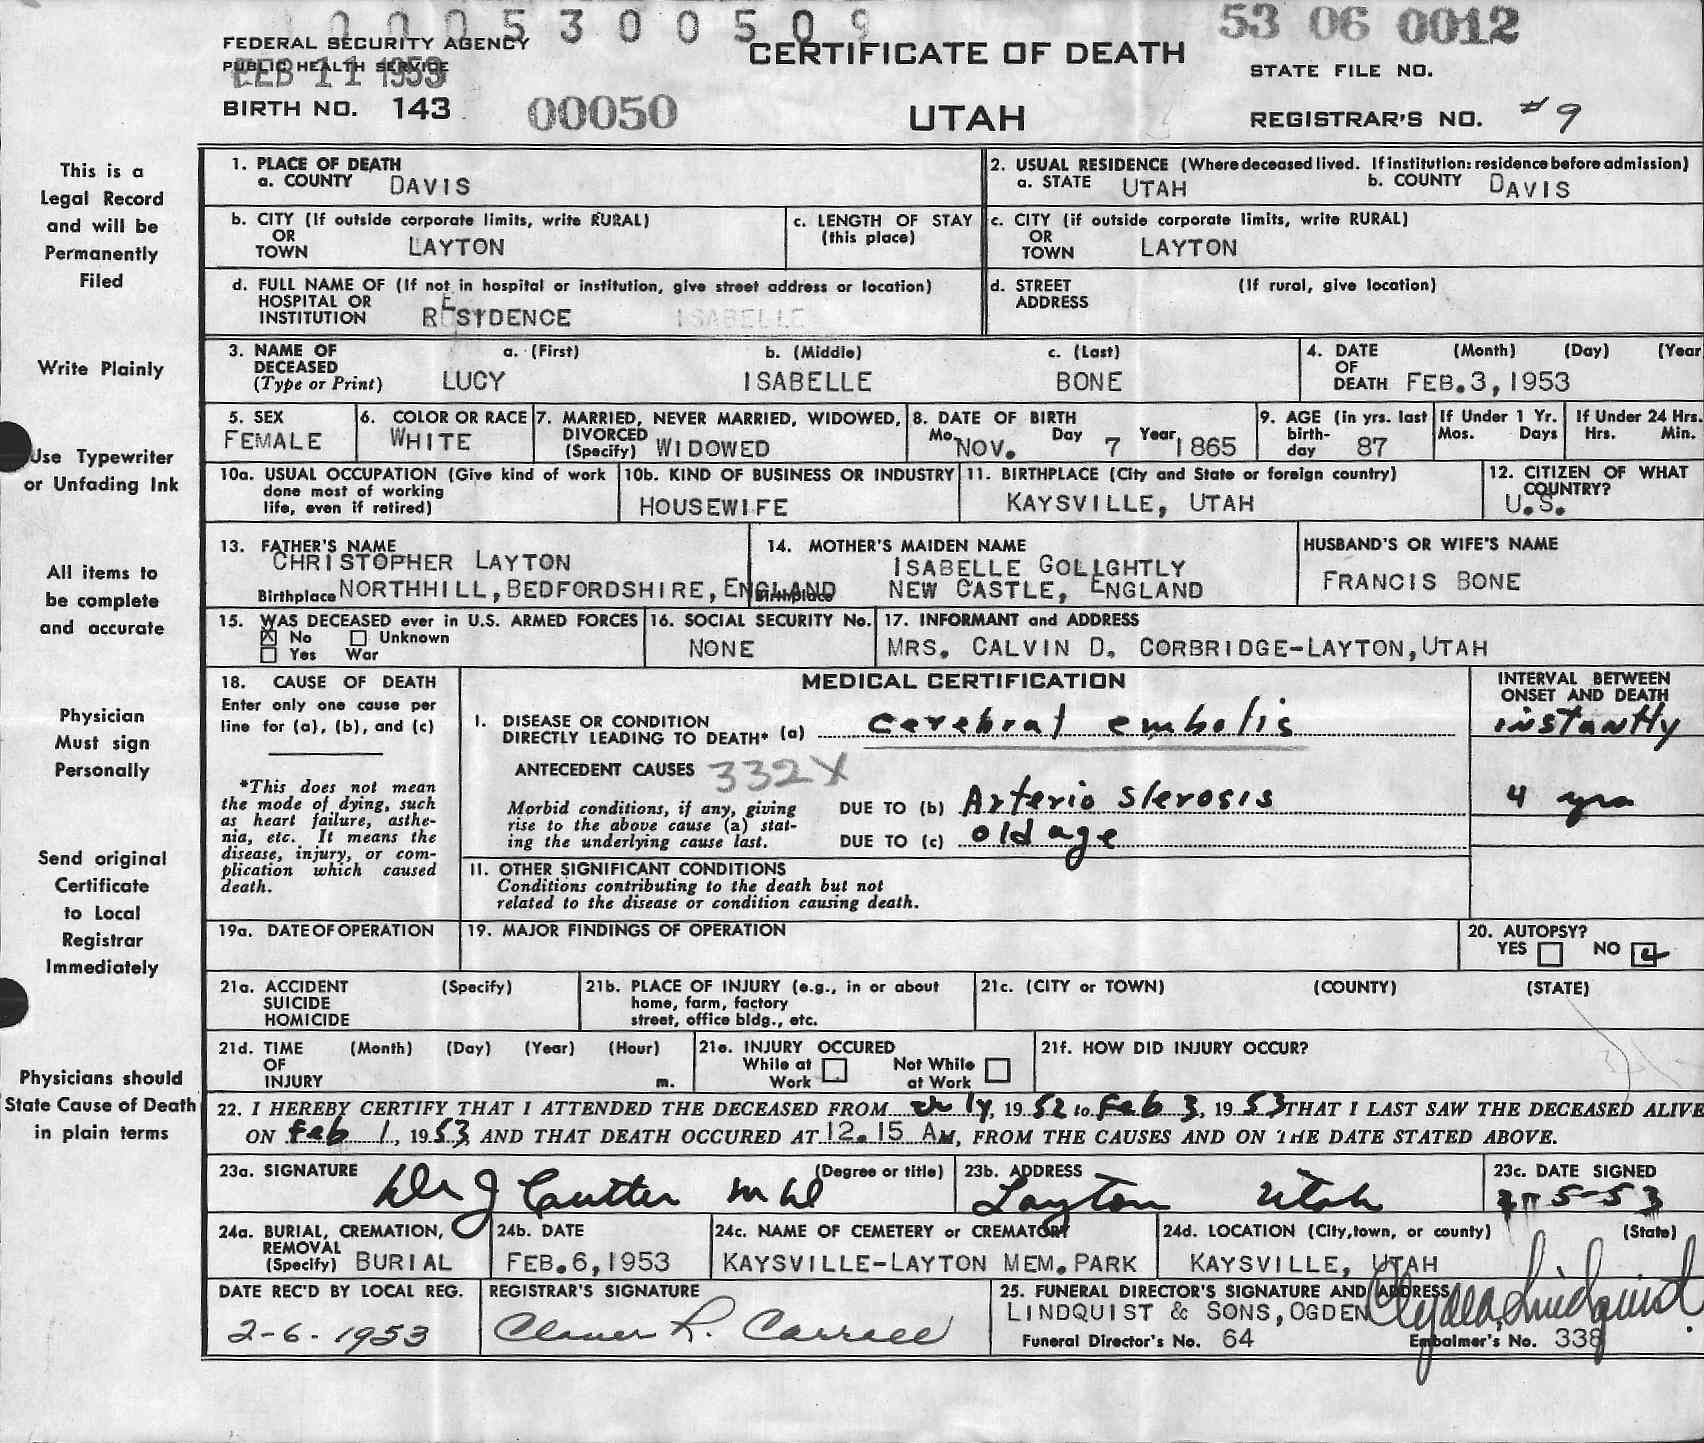 0005300509
53 06 0012
FEDERAL SECURITY AGENCY
PUBLIC HEALTH SERVICE
FEB 11 1953
CERTIFICATE OF DEATH
STATE FILE NO.
BIRTH NO. 143
00050
UTAH
REGISTRAR'S NO. #9
This is a
Legal Record
and will be
Permanently
Filed
Write Plainly
Use Typewriter
or Unfading Ink
All items to
be complete
and accurate
Physician
Must sign
Personally
Send original
Certificate
to Local
Registrar
Immediately
Physicians should
State Cause of Death
in plain terms
1. PLACE OF DEATH
a. COUNTY DAVIS
2. USUAL RESIDENCE (Where deceased lived. If institution: residence before admission)
a. STATE UTAH b. COUNTY DAVIS
b. CITY (If outside corporate limits, write RURAL)
OR
TOWN LAYTON
c. LENGTH OF STAY
(this place)
c. CITY (if outside corporate limits, write RURAL)
OR
TOWN LAYTON
d. FULL NAME OF (If not in hospital or institution, give street address or location)
HOSPITAL OR
INSTITUTION RESIDENCE ISABELLE
d. STREET (If rural, give location)
ADDRESS
3. NAME OF a. (First) b. (Middle) c. (Last)
DECEASED
(Type or Print) LUCY ISABELLE BONE
4. DATE (Month) (Day) (Year
OF
DEATH FEB.3,1953
5. SEX
FEMALE
6. COLOR OR RACE
WHITE
7. MARRIED, NEVER MARRIED, WIDOWED,
DIVORCED
(Specify) WIDOWED
8. DATE OF BIRTH
Mo. NOV. Day 7 Year 1865
9. AGE (in yrs. last
birth-
day 87
If Under 1 Yr.
Mos. Days
If Under 24 Hrs.
Hrs. Min.
10a. USUAL OCCUPATION (Give kind of work
done most of working
life, even if retired)
10b. KIND OF BUSINESS OR INDUSTRY
HOUSEWIFE
11. BIRTHPLACE (City and State or foreign country)
KAYSVILLE, UTAH
12. CITIZEN OF WHAT
COUNTRY?
U.S.
13. FATHER'S NAME
CHRISTOPHER LAYTON
Birthplace NORTHHILL,BEDFORDSHIRE,ENGLAND
14. MOTHER'S MAIDEN NAME
ISABELLE GOLIGHTLY
Birthplace NEW CASTLE, ENGLAND
HUSBAND'S OR WIFE'S NAME
FRANCIS BONE
15. WAS DECEASED ever in U.S. ARMED FORCES
X No Unknown
Yes War
16. SOCIAL SECURITY No.
NONE
17. INFORMANT and ADDRESS
MRS. CALVIN D. CORBRIDGE-LAYTON,UTAH
18. CAUSE OF DEATH
Enter only one cause per
line for (a), (b), and (c)
*This does not mean
the mode of dying, such
as heart failure, asthe-
nia, etc. It means the
disease, injury, or com-
plication which caused
death.
MEDICAL CERTIFICATION
INTERVAL BETWEEN
ONSET AND DEATH
I. DISEASE OR CONDITION
DIRECTLY LEADING TO DEATH* (a) cerebral embolis instantly
ANTECEDENT CAUSES 332X
Morbid conditions, if any, giving
rise to the above cause (a) stat-
ing the underlying cause last.
DUE TO (b) Arterio slerosis 4 yrs
DUE TO (c) old age
II. OTHER SIGNIFICANT CONDITIONS
Conditions contributing to the death but not
related to the disease or condition causing death.
19a. DATE OF OPERATION
19. MAJOR FINDINGS OF OPERATION
20. AUTOPSY?
YES NO
21a. ACCIDENT (Specify)
SUICIDE
HOMICIDE
21b. PLACE OF INJURY (e.g., in or about
home, farm, factory
street, office bldg., etc.
21c. (CITY or TOWN) (COUNTY) (STATE)
21d. TIME (Month) (Day) (Year) (Hour)
OF
INJURY m.
21e. INJURY OCCURED
While at Work Not While at Work
21f. HOW DID INJURY OCCUR?
22. I HEREBY CERTIFY THAT I ATTENDED THE DECEASED FROM July, 1952 to Feb 3, 1953 THAT I LAST SAW THE DECEASED ALIVE
ON Feb 1, 1953 AND THAT DEATH OCCURED AT 12.15 AM, FROM THE CAUSES AND ON THE DATE STATED ABOVE.
23a. SIGNATURE (Degree or title)
23b. ADDRESS
Layton Utah
23c. DATE SIGNED
5-53
24a. BURIAL, CREMATION,
REMOVAL
(Specify) BURIAL
24b. DATE
FEB.6,1953
24c. NAME OF CEMETERY or CREMATORY
KAYSVILLE-LAYTON MEM.PARK
24d. LOCATION (City,town, or county) (State)
KAYSVILLE, UTAH
DATE REC'D BY LOCAL REG.
2-6-1953
REGISTRAR'S SIGNATURE
25. FUNERAL DIRECTOR'S SIGNATURE AND ADDRESS
LINDQUIST & SONS,OGDEN
Funeral Director's No. 64 Embalmer's No. 338